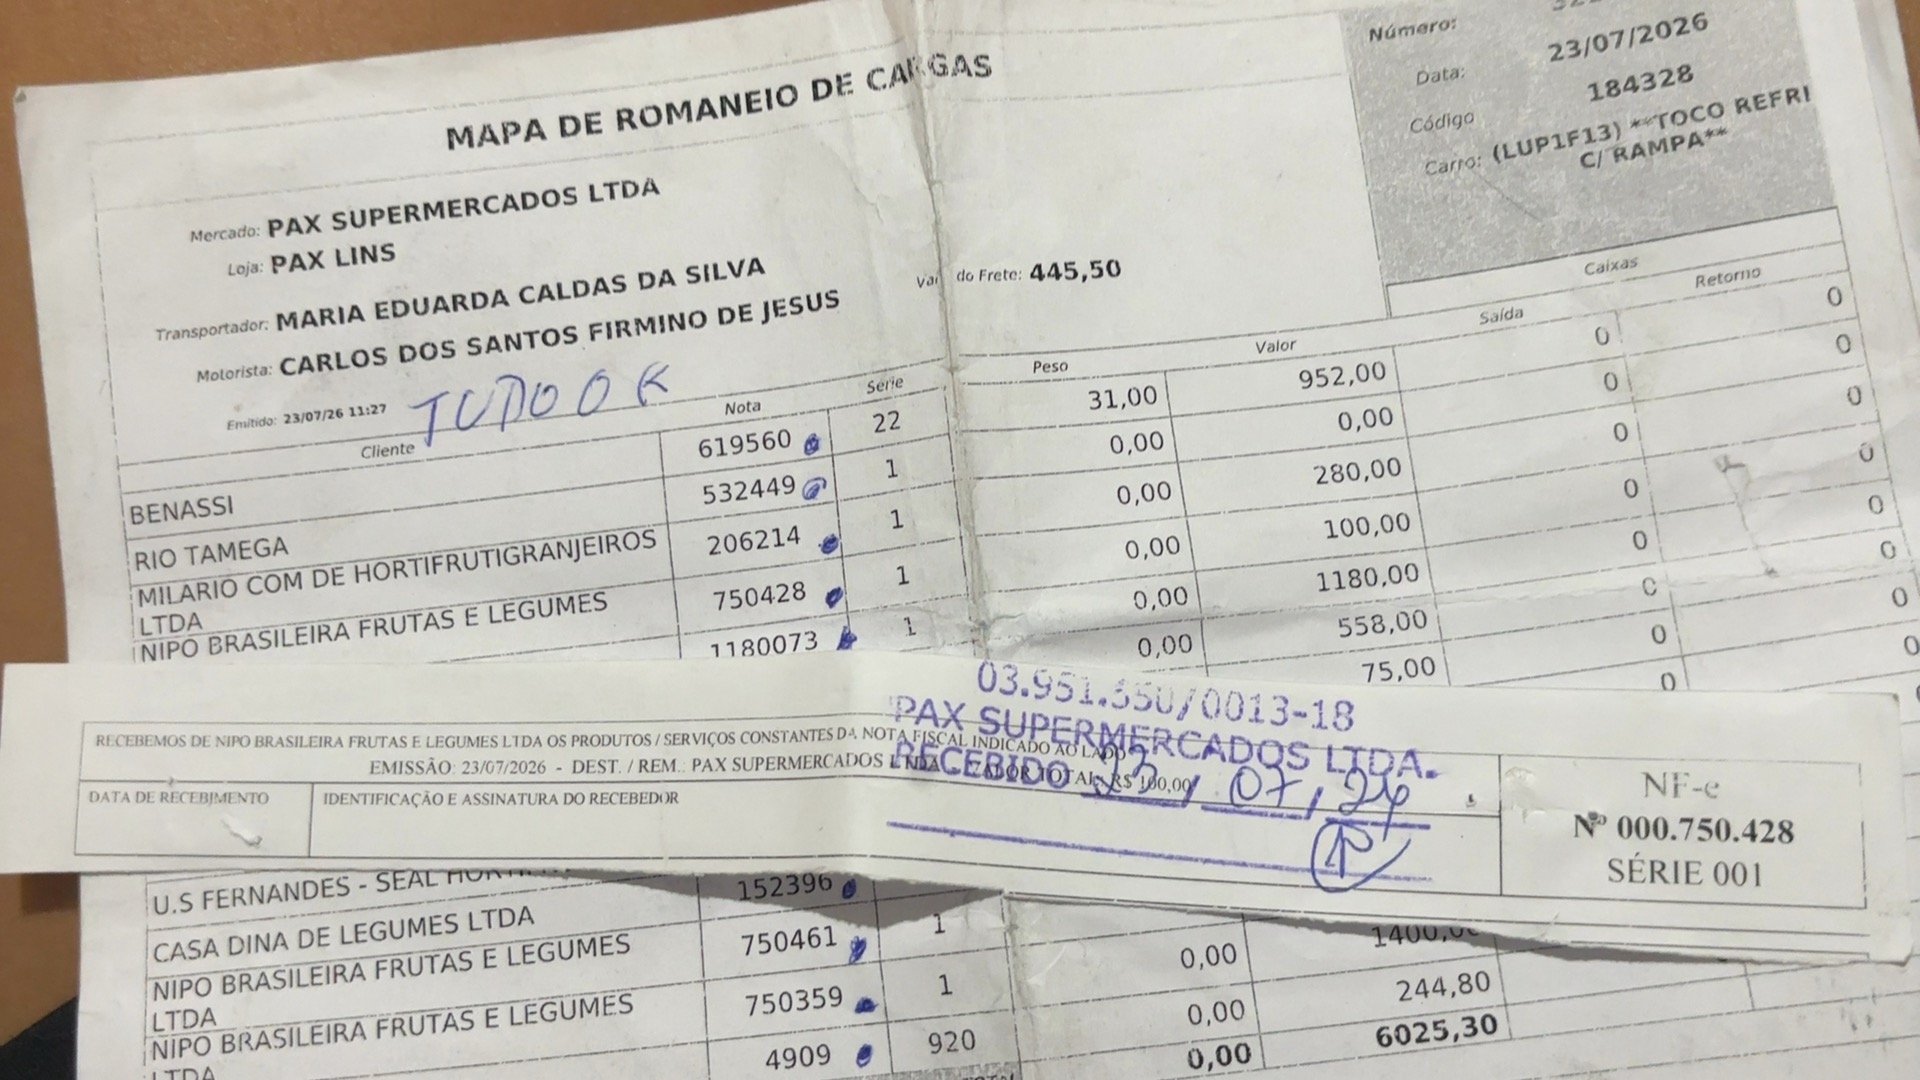 MAPA DE ROMANEIO DE CARGAS
Número:
Data: 23/07/2026
Código 184328
Carro: (LUP1F13) **TOCO REFRI
C/ RAMPA**
Mercado: PAX SUPERMERCADOS LTDA
Loja: PAX LINS
Transportador: MARIA EDUARDA CALDAS DA SILVA
do Frete: 445,50
Motorista: CARLOS DOS SANTOS FIRMINO DE JESUS
Emitido: 23/07/26 11:27
TUDO OK
Caixas
Cliente Nota Série Peso Valor Saída Retorno
BENASSI 619560 22 31,00 952,00 0 0
RIO TAMEGA 532449 1 0,00 0,00 0 0
MILARIO COM DE HORTIFRUTIGRANJEIROS 206214 1 0,00 280,00 0 0
LTDA
NIPO BRASILEIRA FRUTAS E LEGUMES 750428 1 0,00 100,00 0 0
1180073 1 0,00 1180,00 0 0
0,00 558,00 0
75,00 0 0
0 0
03.951.350/0013-18
PAX SUPERMERCADOS LTDA.
RECEBIDO 23/07/26
RECEBEMOS DE NIPO BRASILEIRA FRUTAS E LEGUMES LTDA OS PRODUTOS / SERVIÇOS CONSTANTES DA NOTA FISCAL INDICADO AO LADO
EMISSÃO: 23/07/2026 - DEST. / REM.: PAX SUPERMERCADOS LTDA - VALOR TOTAL: R$ 100,00
DATA DE RECEBIMENTO
IDENTIFICAÇÃO E ASSINATURA DO RECEBEDOR
NF-e
Nº 000.750.428
SÉRIE 001
U.S FERNANDES - SEAL 152396
CASA DINA DE LEGUMES LTDA 750461 1 0,00 1400,00
NIPO BRASILEIRA FRUTAS E LEGUMES 750359 1 0,00 244,80
LTDA
NIPO BRASILEIRA FRUTAS E LEGUMES 4909 920 0,00 6025,30
LTDA